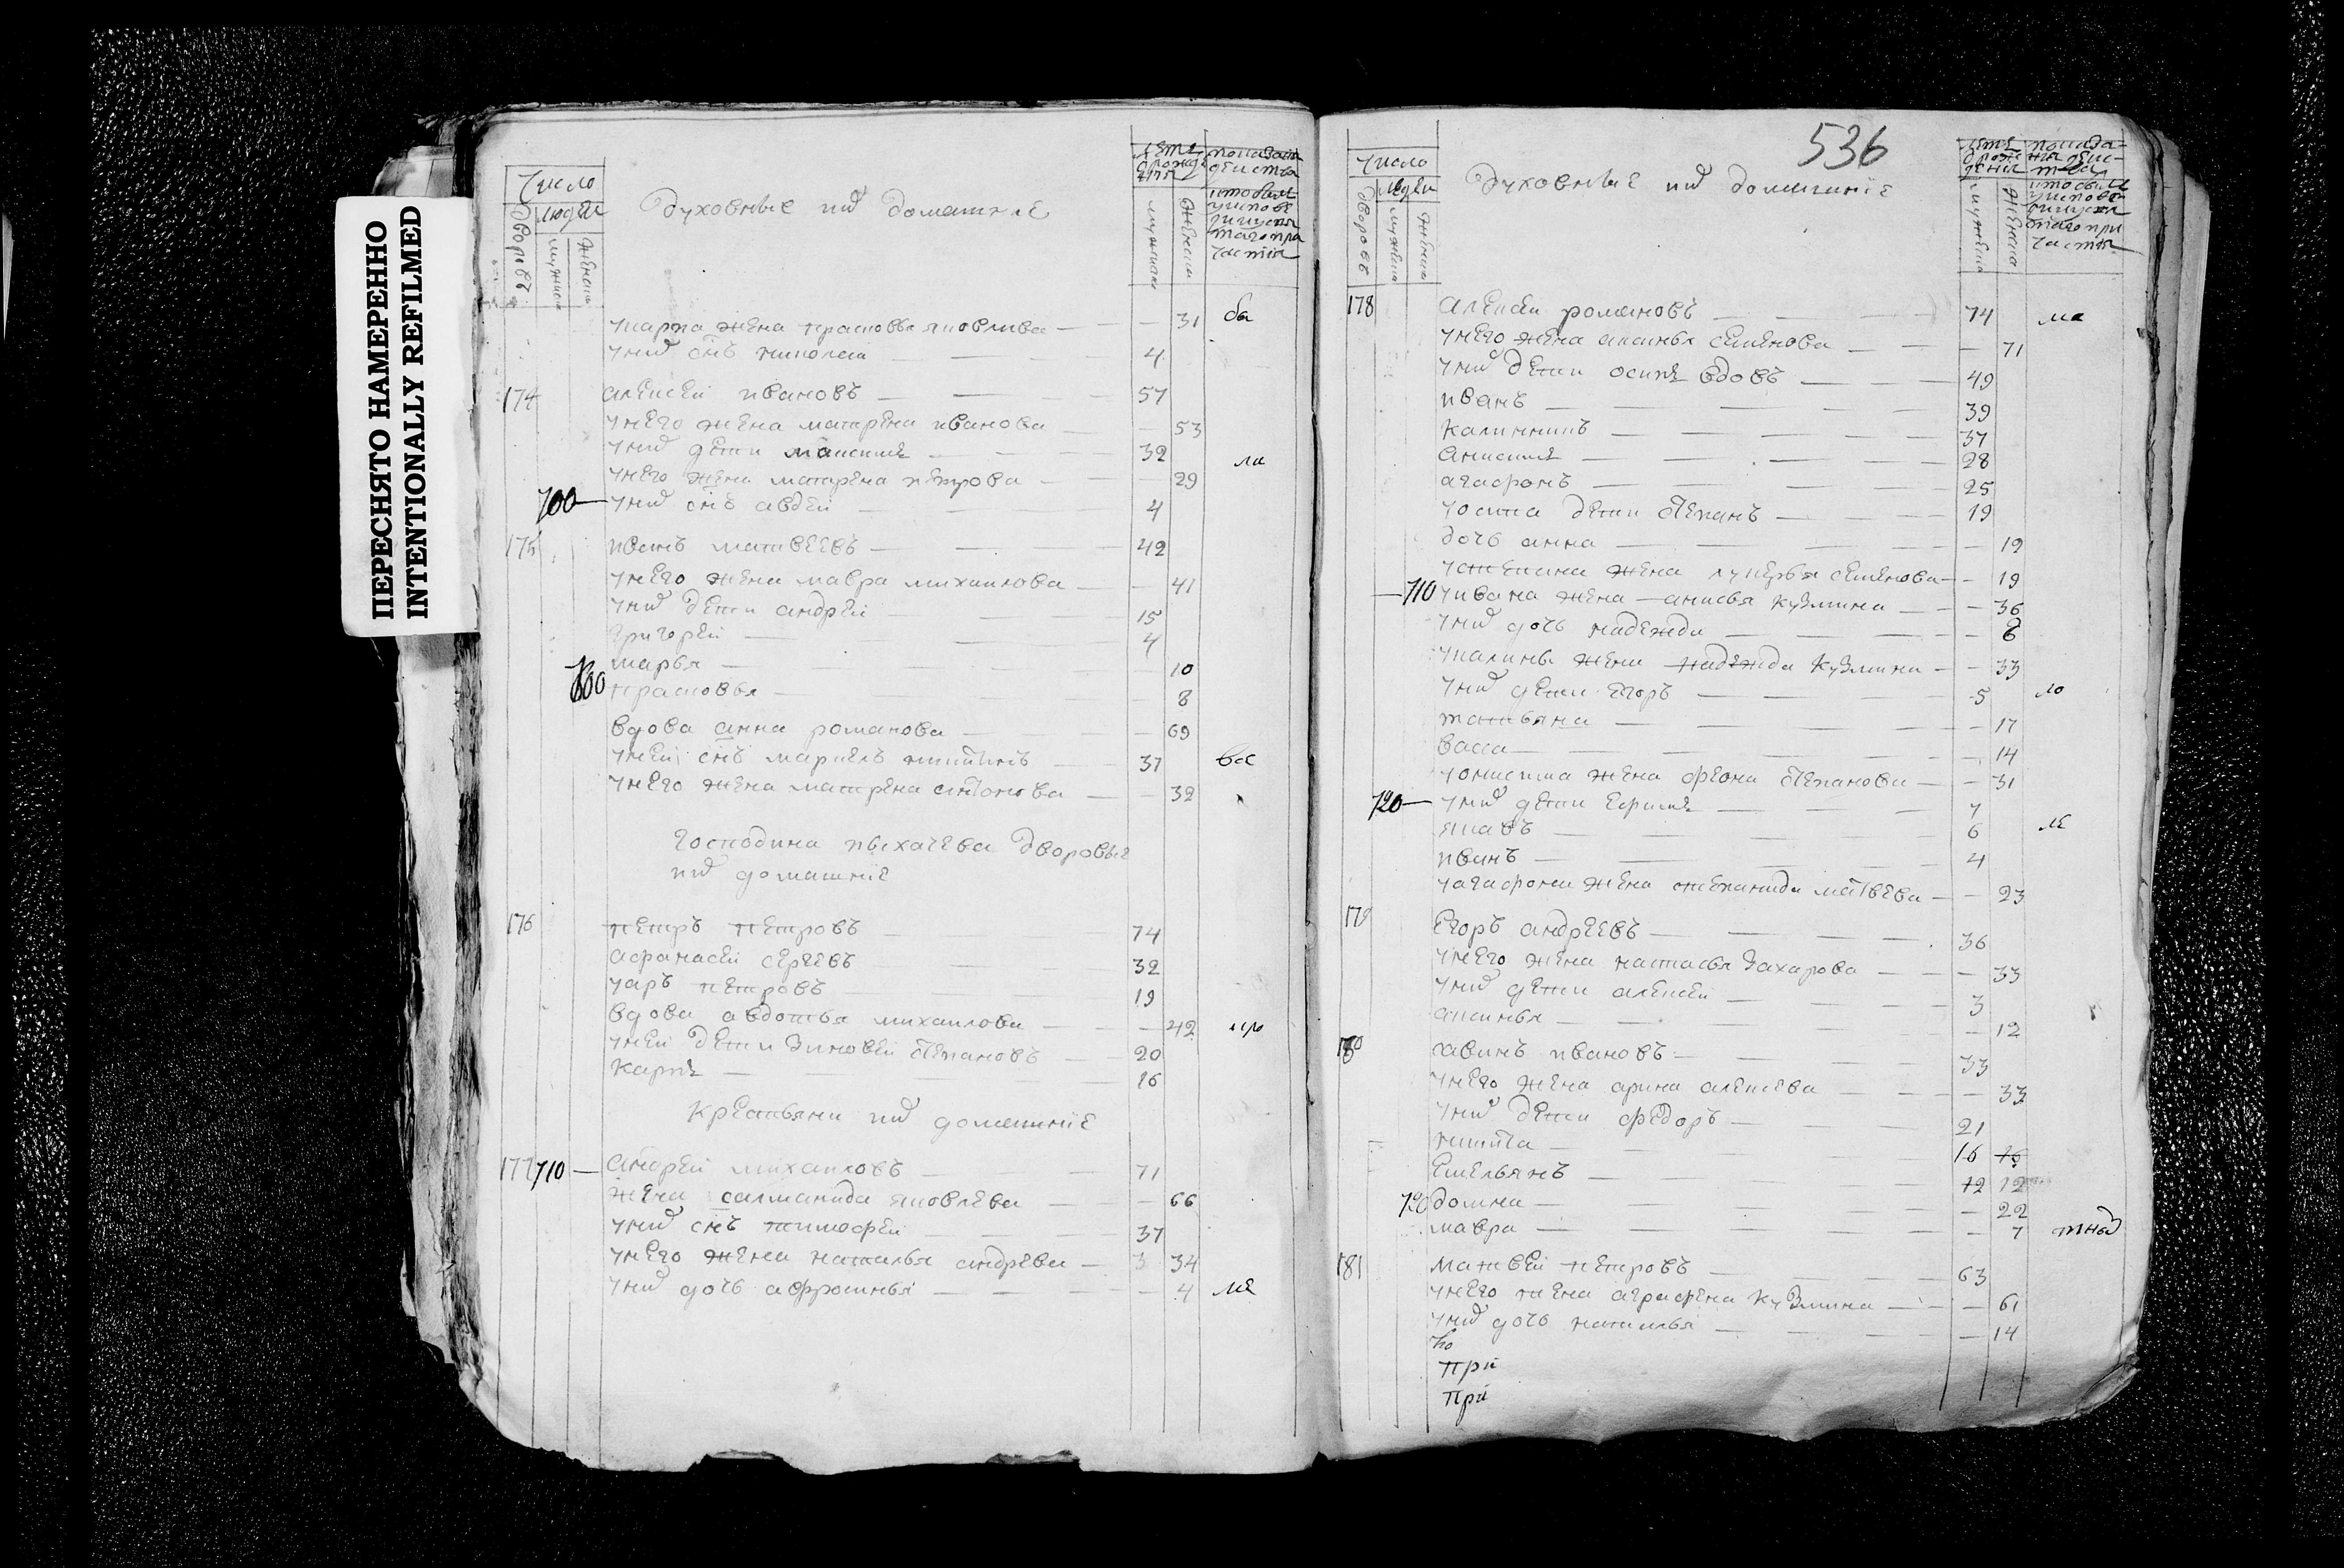 ПЕРЕСНЯТО НАМЕРЕННО
INTENTIONALLY REFILMED
число
людей
дворовъ
мужеска
женска
духовные ихъ домашние
лета
показание
31 бы
укарпа жена прасковья яковлева — 31
унихъ снъ николаи — 4
174 алексеи ивановъ — 57
унего жена матрена иванова — 53
унихъ дети максимъ — 32
ла
унего жена матрена петрова — 29
700 — унихъ снъ авдеи — 4
175 иванъ матвеевъ — 42
унего жена мавра михаилова — 41
унихъ дети андреи — 15
григореи — 4
марья — 10
700 прасковья — 8
вдова анна романова — 69
унеи снъ маркелъ никитинъ — 37 все
унего жена матрена антонова — 32
господина пыхачева дворовые
ихъ домашние
176 петръ петровъ — 74
афанасеи сергеевъ — 32
уаръ петровъ — 19
вдова авдотья михаилова — 42
унеи дети зиновеи степановъ — 20
карпъ — 16
крестьяни ихъ домашние
177 710 — андреи михаиловъ — 71
жена салманида яковлева — 66
унихъ снъ тимофеи — 37
унего жена наталья андреева — 3 34
унихъ дочь афросинья — 4 ле
536
число
людеи
дворовъ
мужска
женска
духовные ихъ домашние
178 алексеи романовъ — 74 ма
унего жена аксинья семенова — 71
унихъ дети осипъ вдовъ — 49
иванъ — 39
калинникъ — 37
анисимъ — 28
агафонъ — 25
уосипа дети степанъ — 19
дочь анна — 12
устепана жена лукерья семенова — 19
— 710 уивана жена анисья кузмина — 36
унихъ дочь надежда — 8
укалины жена надежда кузмина — 33
унихъ дети егоръ — 5 ло
татьяна — 17
васа — 14
уонисима жена феона степанова — 31
720 — унихъ дети ефимъ — 7
яковъ — 6 ле
иванъ — 4
уагафона жена степанида матвева — 23
179 егоръ андреевъ — 36
унего жена настасья захарова — 33
унихъ дети алексеи — 3
аксинья — 12
180 савинъ ивановъ — 33
унего жена арина алексева — 33
унихъ дети федоръ — 21
никита — 16
емельянъ — 12 12
720 домна — 22
мавра — 7
181 матвеи петровъ — 63
унего жена аграфена кузмина — 61
унихъ дочь наталья — 14
ко
при
при